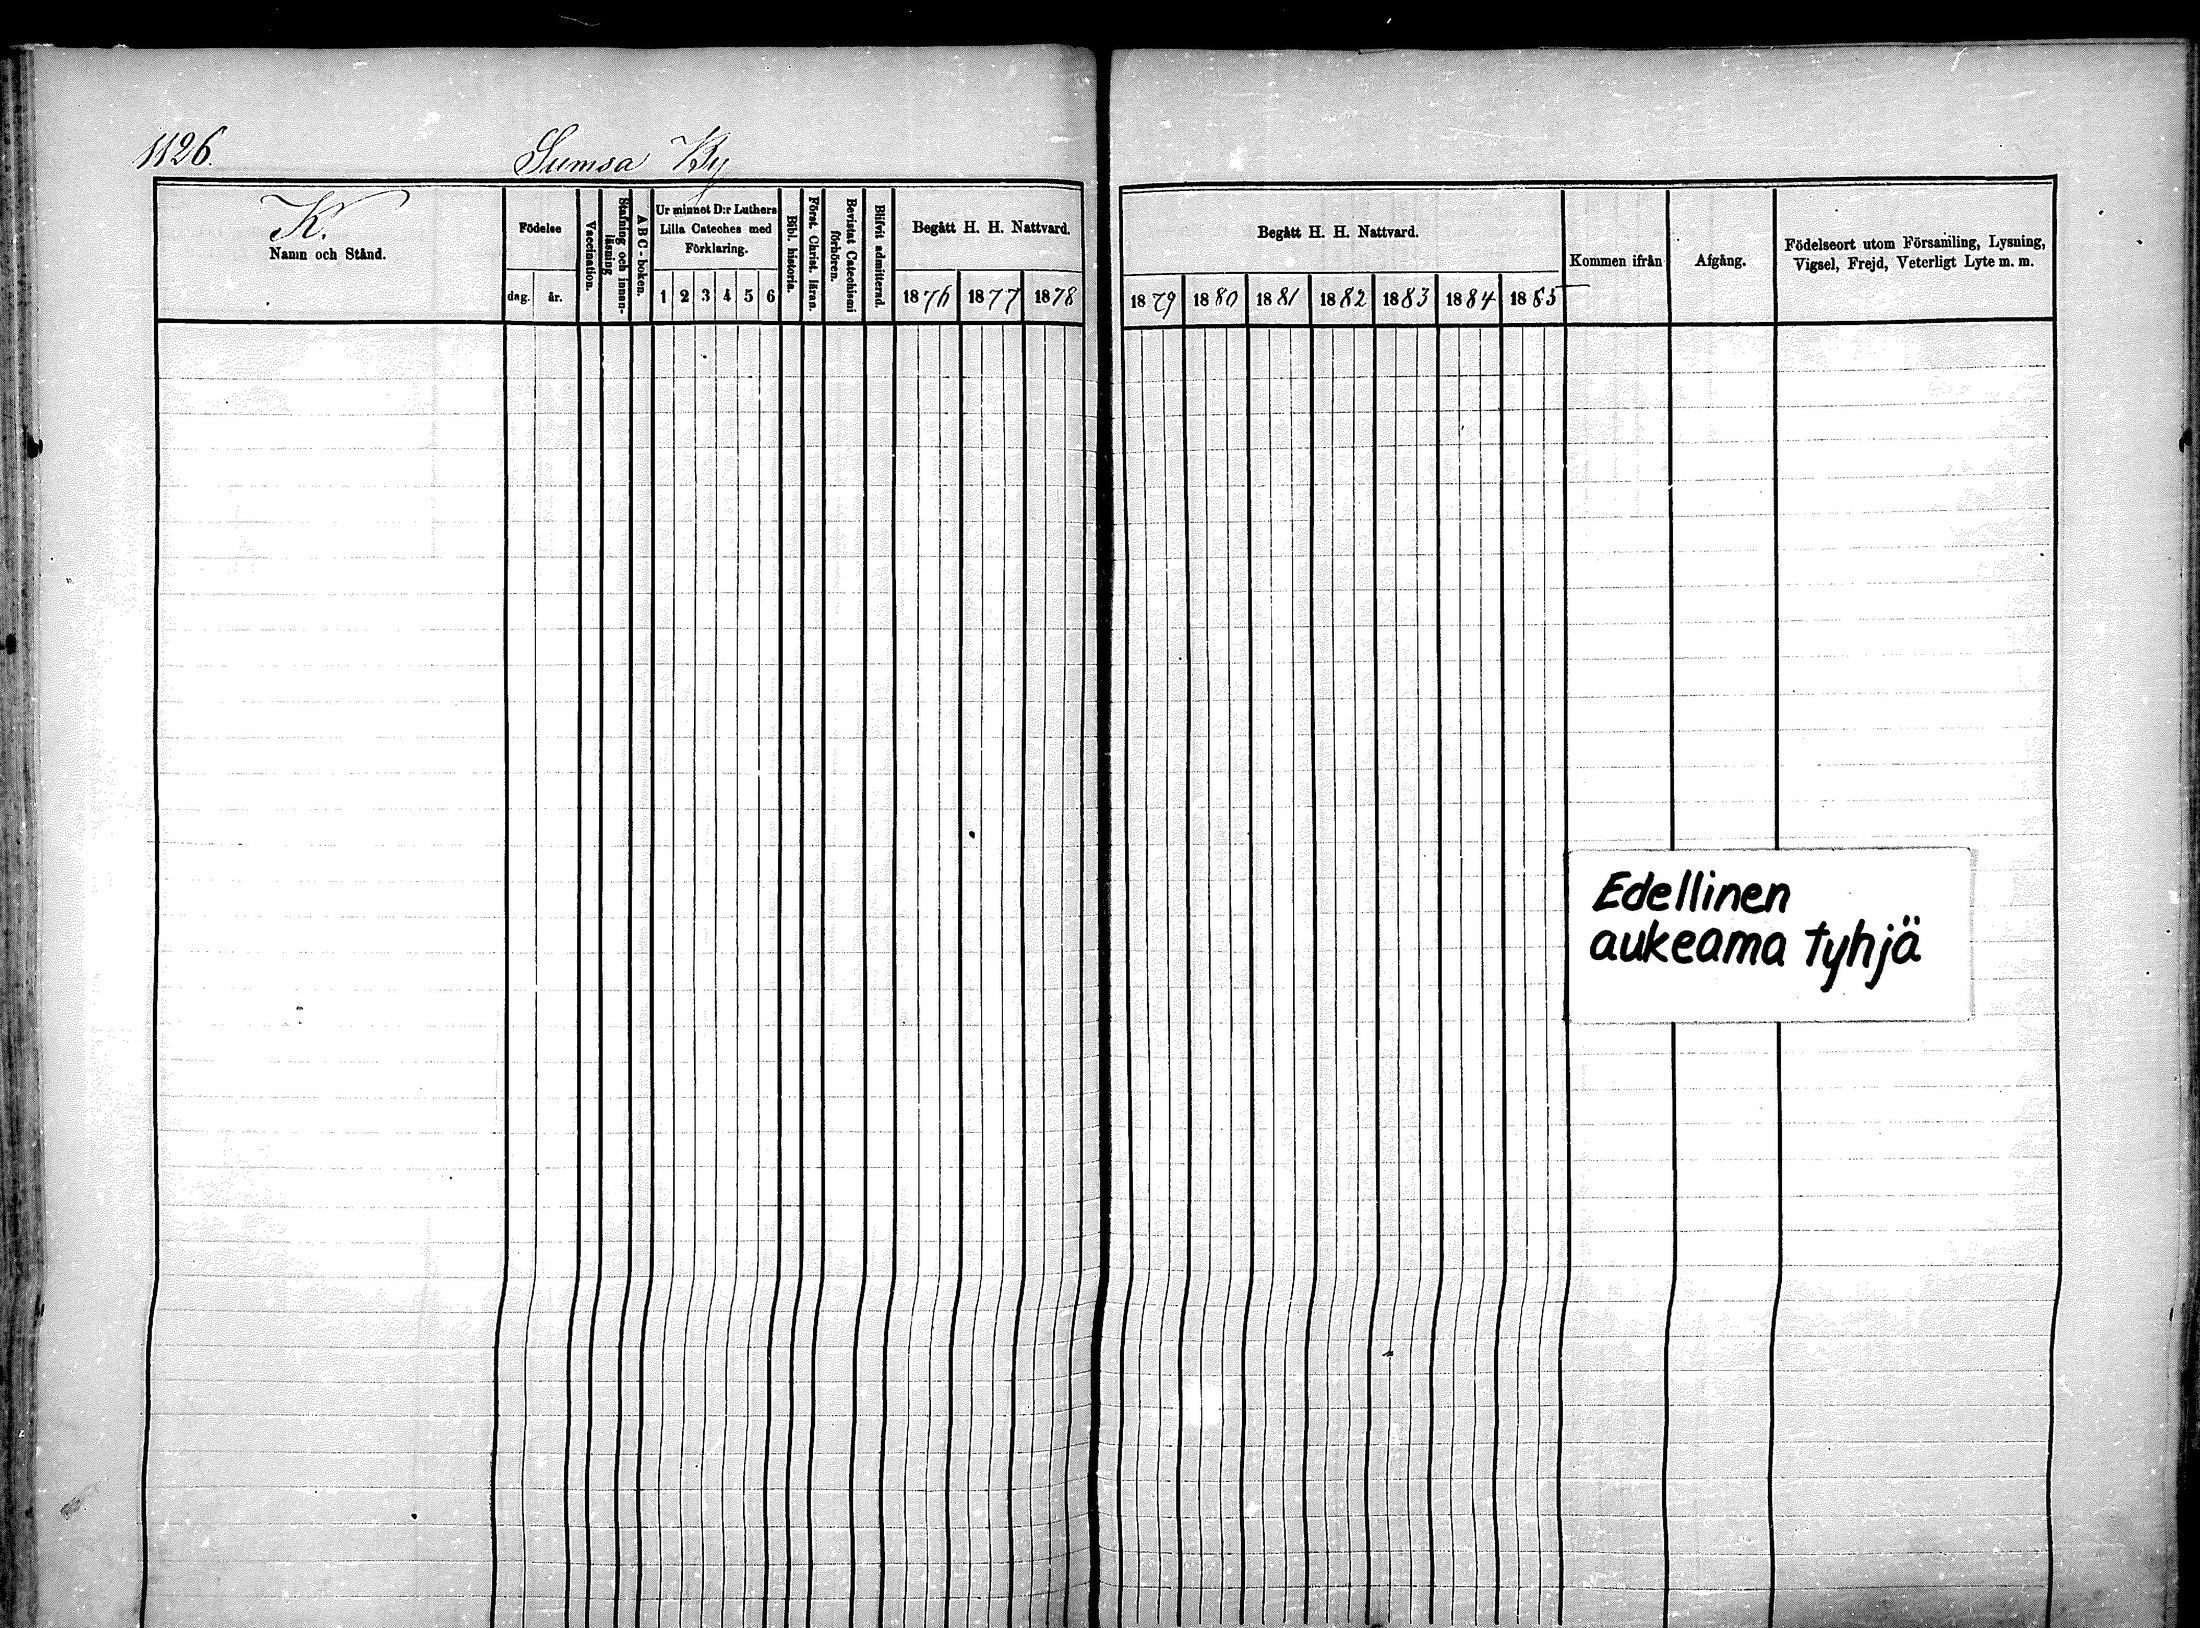 1126.
Sumsa By
K.
Namn och Stånd.
Födelse
dag.
år.
Vaccination.
Stafning och innan-
läsning
ABC-boken.
Ur minnet D:r Luthers
Lilla Cateches med
Förklaring.
1 2 3 4 5 6
Bibl. historia.
Först. Christ. läran.
Bevistat Catechismi
förhören.
Blifvit admitterad.
Begått H. H. Nattvard.
1876 1877 1878
Begått H. H. Nattvard.
1879 1880 1881 1882 1883 1884 1885
Kommen ifrån
Afgång.
Födelseort utom Församling, Lysning,
Vigsel, Frejd, Veterligt Lyte m. m.
Edellinen
aukeama tyhjä